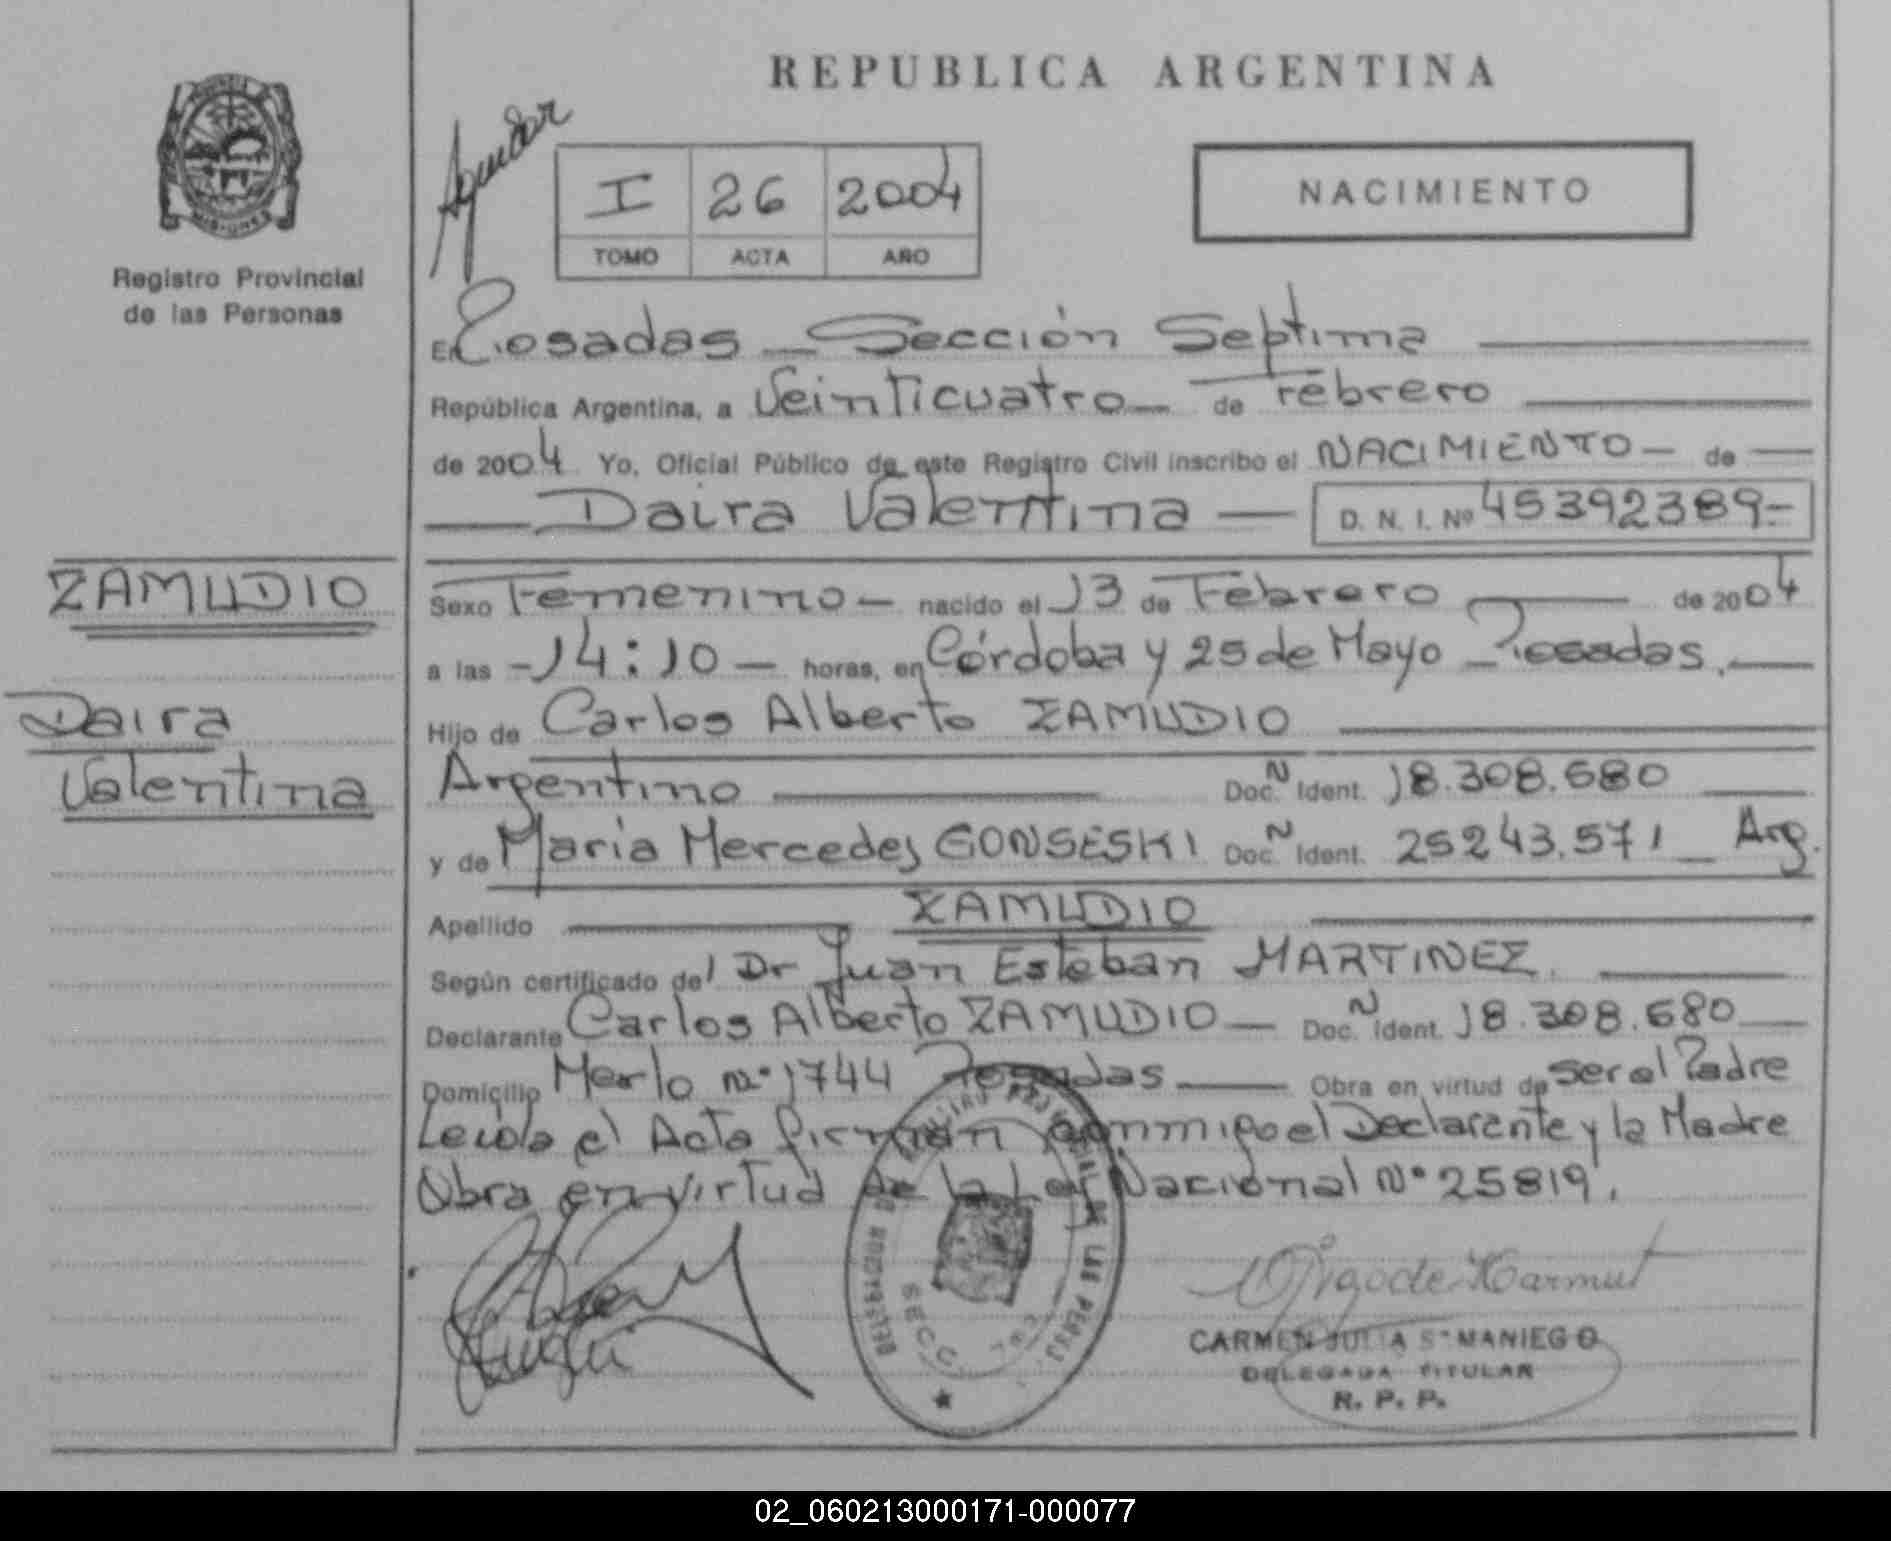 REPUBLICA ARGENTINA
Aguilar
I 26 2004
TOMO ACTA AÑO
NACIMIENTO
Registro Provincial
de las Personas
En Posadas Sección Septima
República Argentina, a Veinticuatro de Febrero
de 2004 Yo, Oficial Público de este Registro Civil inscribo el NACIMIENTO de
Daira Valentina D. N. I. Nº 45392389
ZAMUDIO
Daira
Valentina
Sexo Femenino nacido el 13 de Febrero de 2004
a las 14:10 horas, en Córdoba y 25 de Mayo Posadas.
Hijo de Carlos Alberto ZAMUDIO
Argentino Doc. N Ident. 18.308.680
y de Maria Mercedes GONSESKI Doc. N Ident. 25243.571 Arg.
Apellido ZAMUDIO
Según certificado del Dr Juan Esteban MARTINEZ.
Declarante Carlos Alberto ZAMUDIO Doc. N Ident. 18.308.680
Domicilio Merlo nº 1744 Posadas Obra en virtud de ser el Padre
Leida el Acta firman conmigo el Declarante y la Madre
Obra en virtud de la Ley Nacional Nº 25819.
CARMEN JULIA S. MANIEGO
DELEGADA TITULAR
R. P. P.
02_060213000171-000077